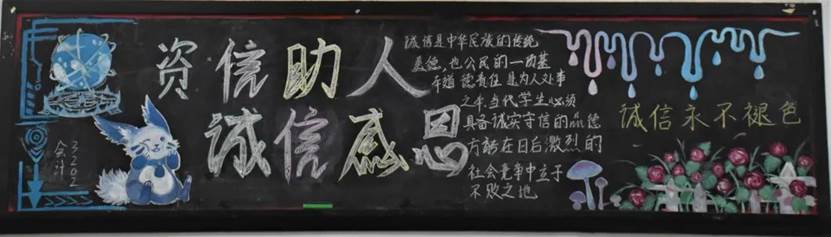 资信助人
诚信感恩
诚信是中华民族的传统
美德,也公民的一项基
本道德责任是为人处事
之本当代学生必须
具备诚实守信的品德
方能在日后激烈的
社会竞争中立于
不败之地
诚信永不褪色
会计
3202